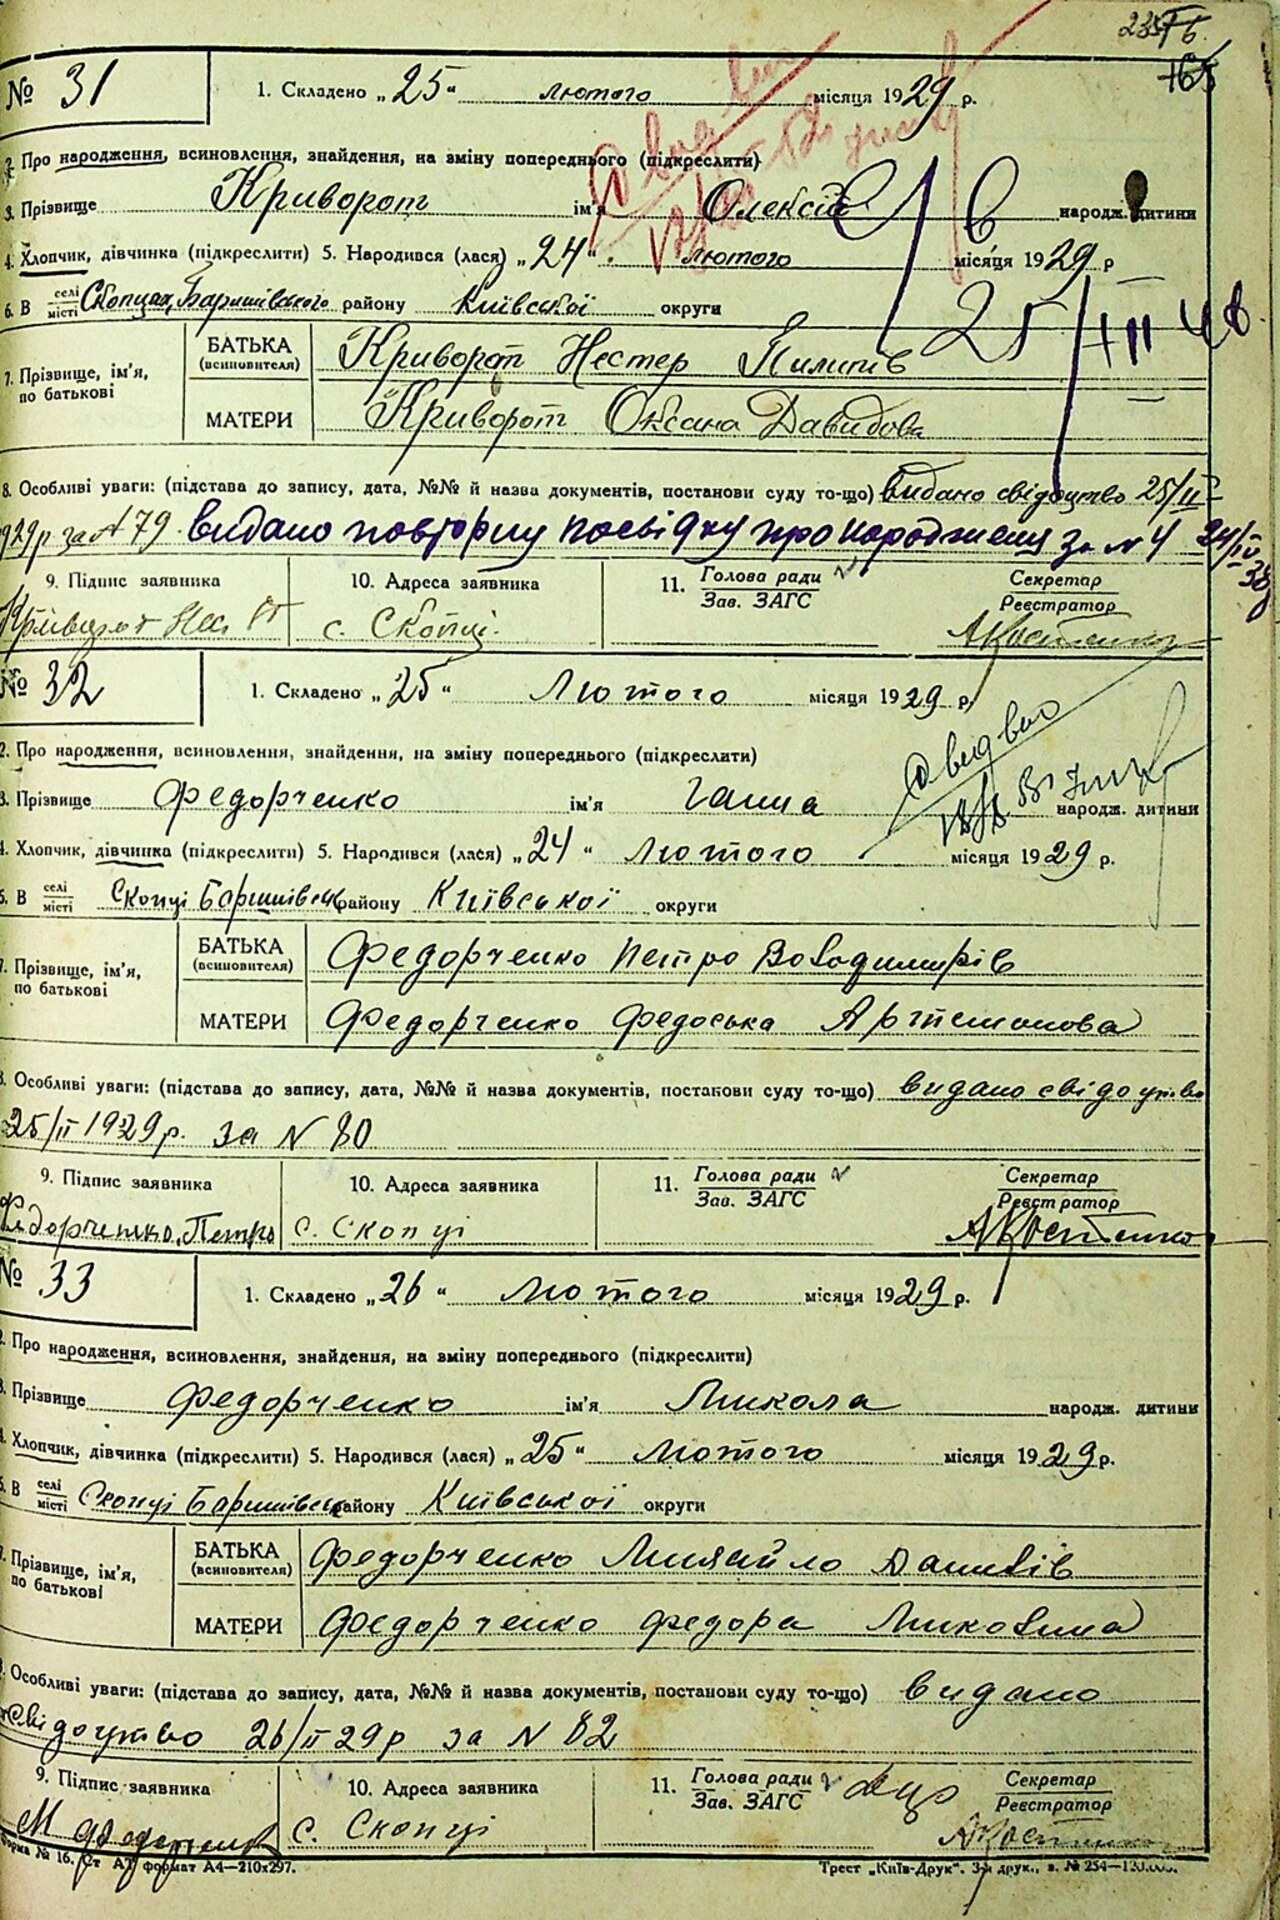 № 31
1. Складено „25“ лютого місяця 1929 р.
2. Про народження, всиновлення, знайдення, на зміну попереднього (підкреслити)
3. Прізвище Криворот ім'я Олексій народж. дитини
4. Хлопчик, дівчинка (підкреслити) 5. Народився (лася) „24“ лютого місяця 1929 р
6. В селі місті Скопцях, Баришівського району Київської округи
25/III
7. Прізвище, ім'я, по батькові
БАТЬКА (всиновителя) Криворот Нестер Пилипів
МАТЕРИ Криворот Оксана Давидова
8. Особливі уваги: (підстава до запису, дата, №№ й назва документів, постанови суду то-що) Видано свідоцтво 25/II
1929р за № 79. видано повторну посвідку про народження за № 4 24/IV
9. Підпис заявника 10. Адреса заявника 11. Голова ради Зав. ЗАГС Секретар Реєстратор
с. Скопці. АКостенко
№ 32
1. Складено „25“ Лютого місяця 1929 р.
2. Про народження, всиновлення, знайдення, на зміну попереднього (підкреслити)
3. Прізвище Федорченко ім'я Ганна народж. дитини
4. Хлопчик, дівчинка (підкреслити) 5. Народився (лася) „24“ Лютого місяця 1929 р.
6. В селі місті Скопці Баришівськ району Київської округи
7. Прізвище, ім'я, по батькові
БАТЬКА (всиновителя) Федорченко Петро Володимирів
МАТЕРИ Федорченко Федоська Артемонова
8. Особливі уваги: (підстава до запису, дата, №№ й назва документів, постанови суду то-що) видано свідоцтво
25/II 1929р. за № 80
9. Підпис заявника 10. Адреса заявника 11. Голова ради Зав. ЗАГС Секретар Реєстратор
Федорченко, Петро с. Скопці АКостенко
№ 33
1. Складено „26“ Лютого місяця 1929 р.
2. Про народження, всиновлення, знайдення, на зміну попереднього (підкреслити)
3. Прізвище Федорченко ім'я Микола народж. дитини
4. Хлопчик, дівчинка (підкреслити) 5. Народився (лася) „25“ Лютого місяця 1929 р.
6. В селі місті Скопці Баришівськ району Київської округи
7. Прізвище, ім'я, по батькові
БАТЬКА (всиновителя) Федорченко Михайло Данилів
МАТЕРИ Федорченко Федора Миколина
8. Особливі уваги: (підстава до запису, дата, №№ й назва документів, постанови суду то-що) видано
свідоцтво 26/II 29р за № 82
9. Підпис заявника 10. Адреса заявника 11. Голова ради Зав. ЗАГС Секретар Реєстратор
с. Скопці АКостенко
Форма № 16. Ст АТ формат А4—210х297.
Трест „Київ-Друк“. 3-я друк., з. № 254—120.000.